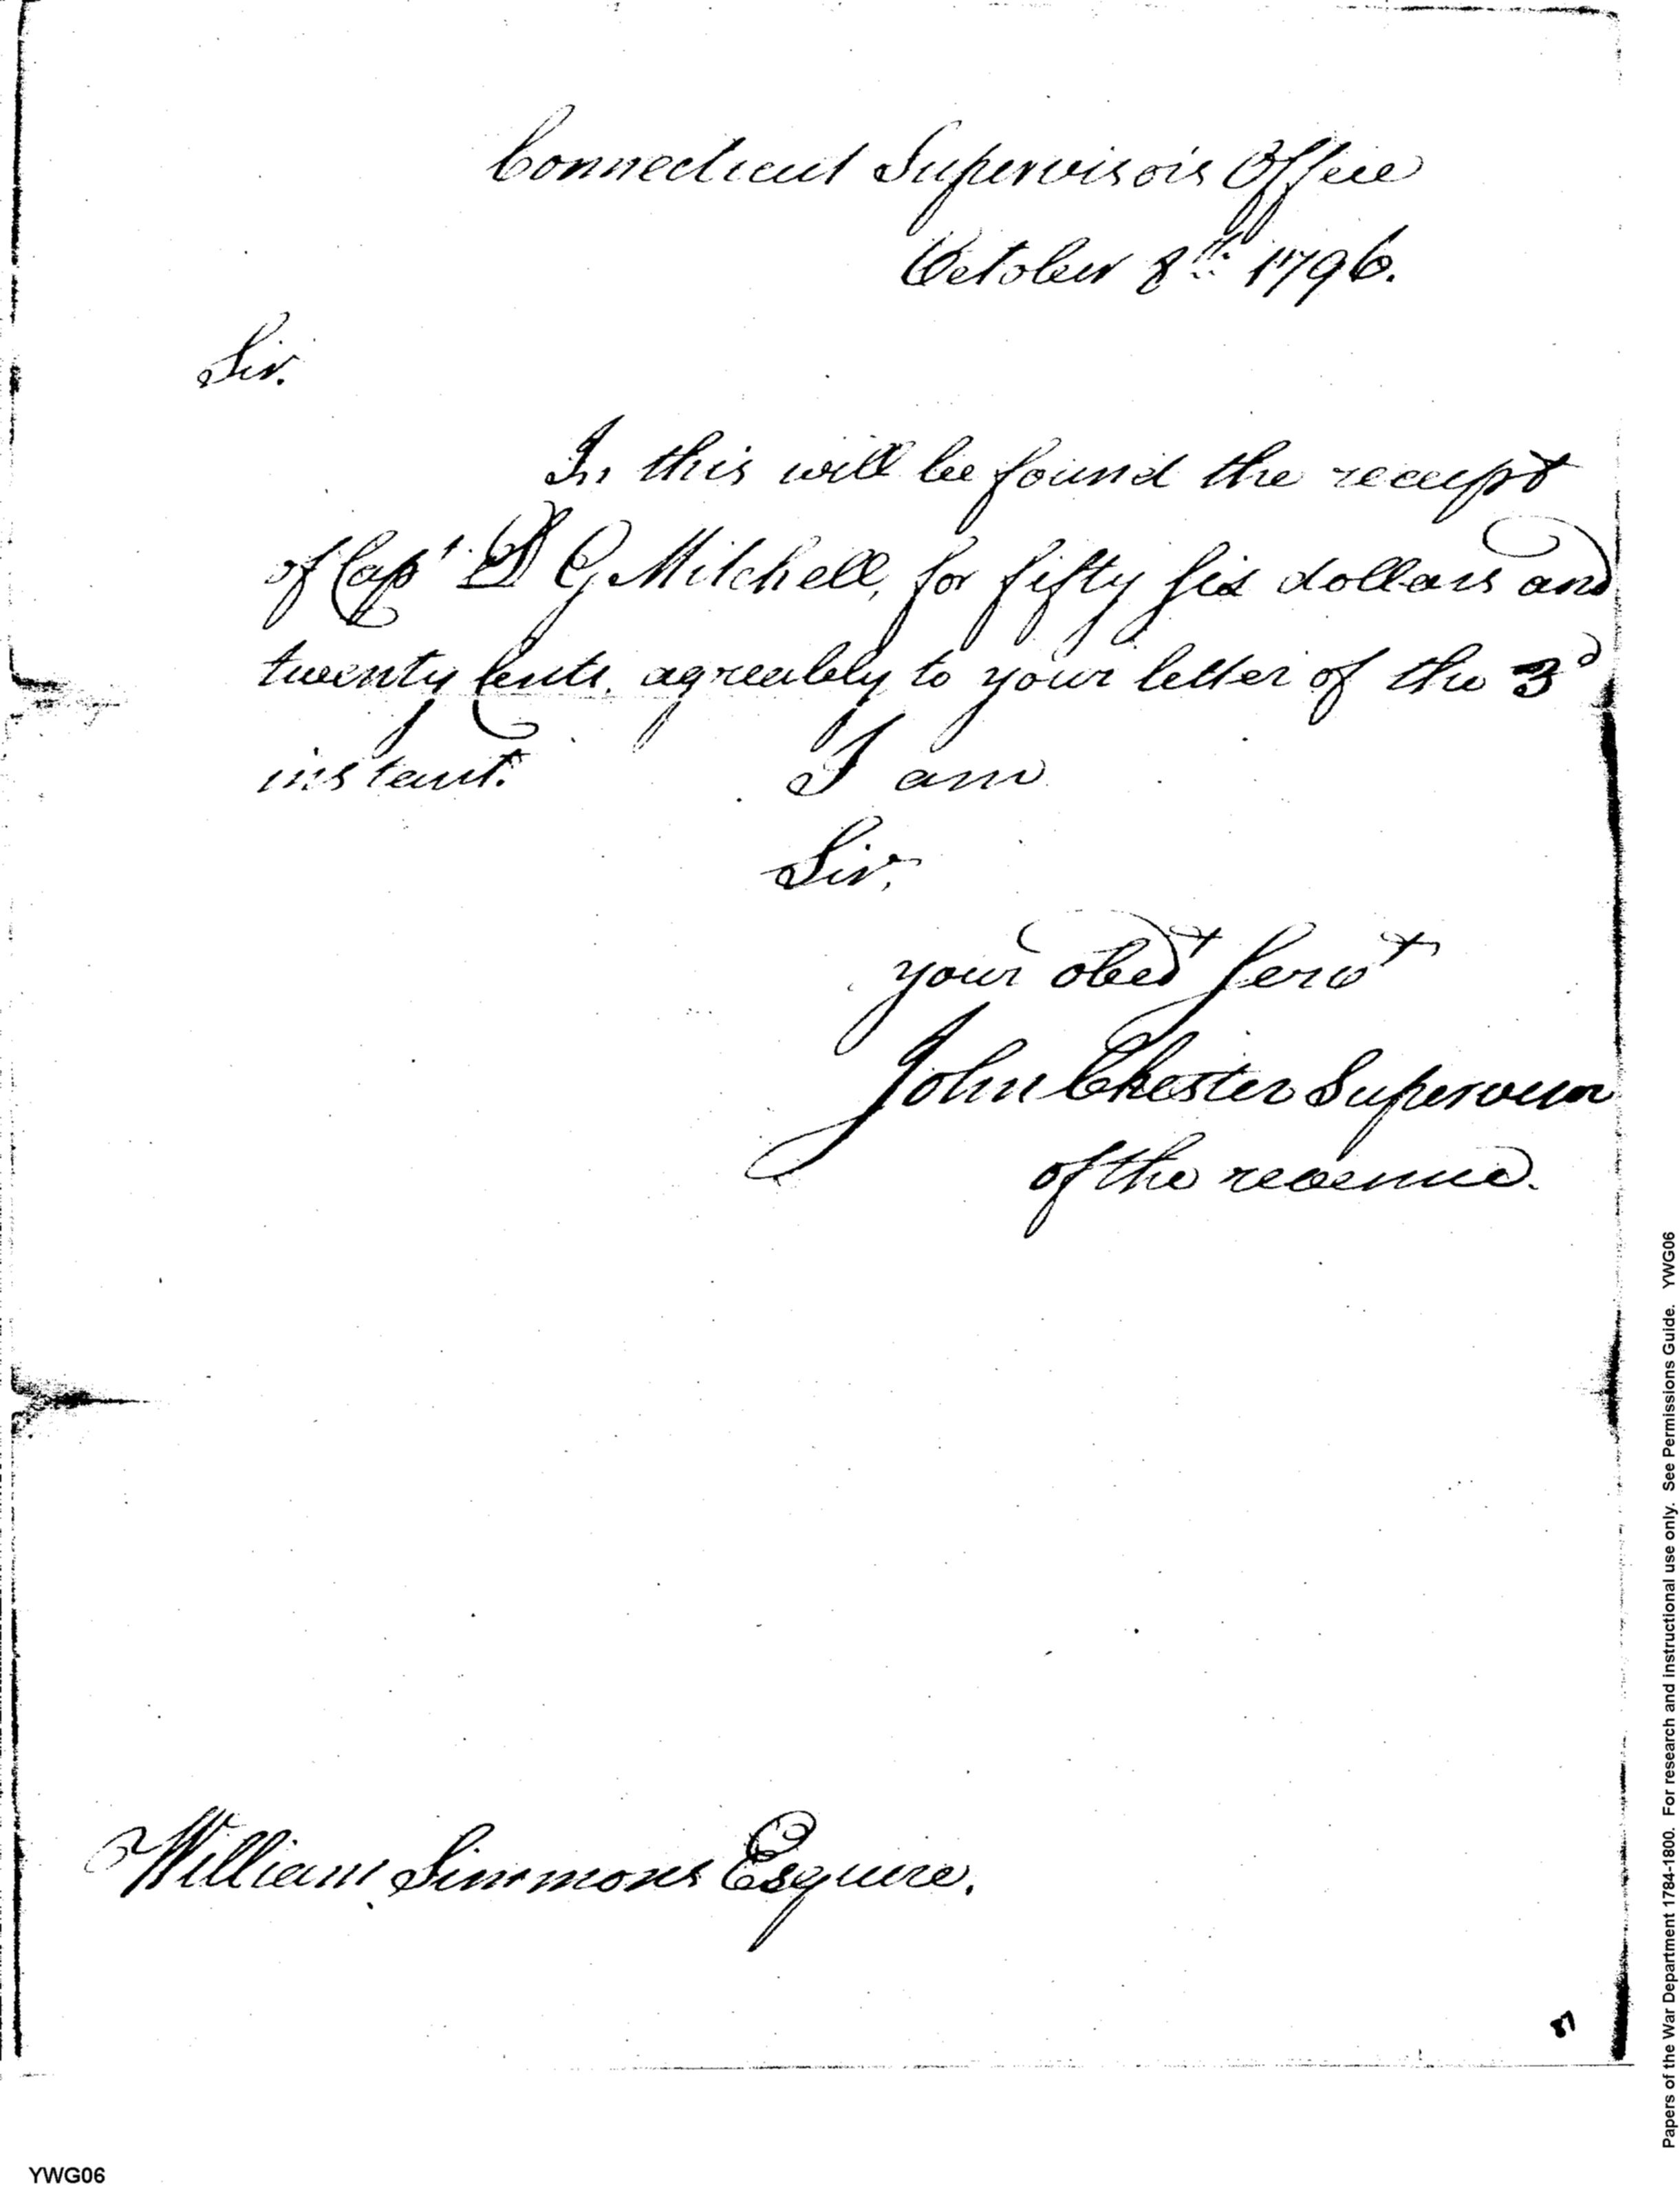 Connecticut Supervisors Office
October 8th 1796.
Sir.
In this will be found the receipt
of Capt. D G Mitchell, for fifty six dollars and
twenty Cents. agreeably to your letter of the 3d
instant. I am
Sir.
your obedt Servt
John Chester Supervisor
of the revenue.
William Simmons Esquire.
87
YWG06
Papers of the War Department 1784-1800. For research and instructional use only. See Permissions Guide. YWG06